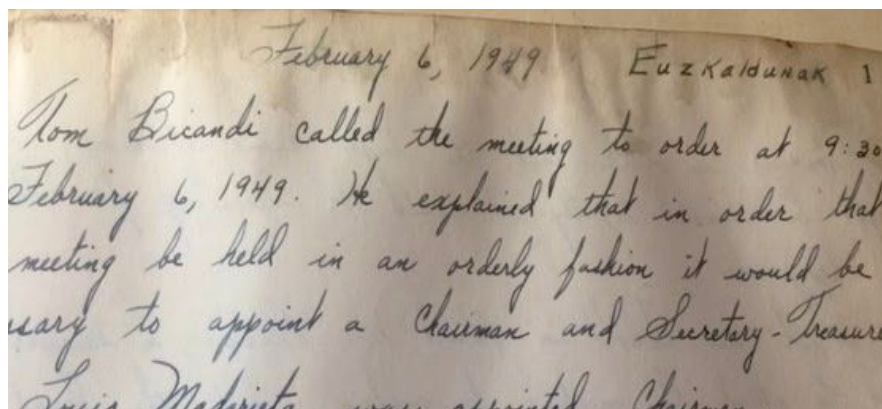 February 6, 1949 Euzkaldunak 1
Tom Bicandi called the meeting to order at 9:30
February 6, 1949. He explained that in order that
meeting be held in an orderly fashion it would be
ssary to appoint a Chairman and Secretary-Treasure
Louis Madarieta was appointed Chairman